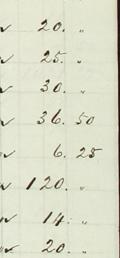 ✓ 20. "
✓ 25. "
✓ 30. "
✓ 36. 50
✓ 6. 25
✓ 120. "
✓ 14. "
✓ 20. "